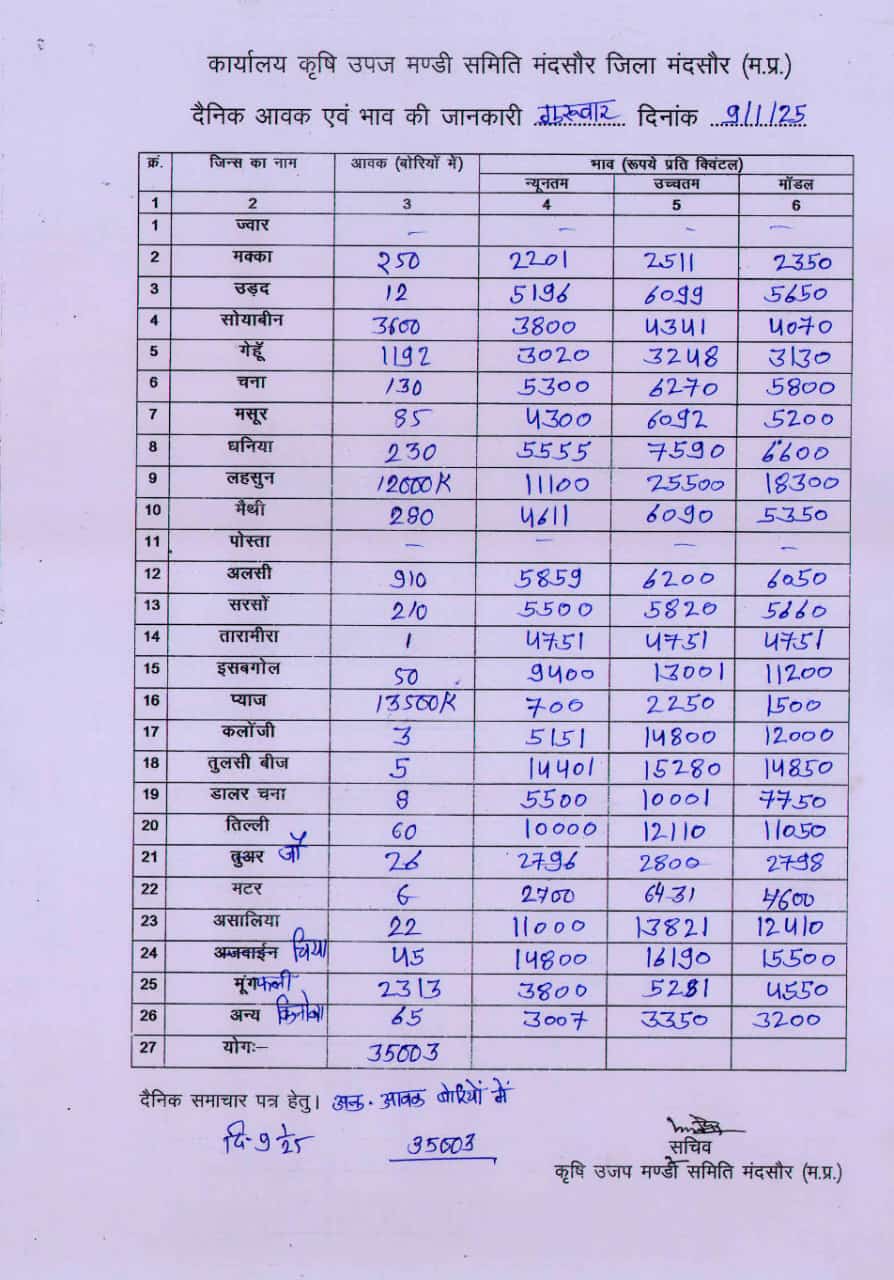 कार्यालय कृषि उपज मण्डी समिति मंदसौर जिला मंदसौर (म.प्र.)
दैनिक आवक एवं भाव की जानकारी गुरूवार दिनांक 9/1/25
क्रं. जिन्स का नाम आवक (बोरियों में) भाव (रूपये प्रति क्विंटल)
न्यूनतम उच्चतम मॉडल
1 2 3 4 5 6
1 ज्वार – – – –
2 मक्का 250 2201 2511 2350
3 उड़द 12 5196 6099 5650
4 सोयाबीन 3600 3800 4341 4070
5 गेहूॅ 1192 3020 3248 3130
6 चना 130 5300 6270 5800
7 मसूर 85 4300 6092 5200
8 धनिया 230 5555 7590 6600
9 लहसुन 12000K 11100 25500 18300
10 मैथी 280 4611 6090 5350
11 पोस्ता – – – –
12 अलसी 910 5859 6200 6050
13 सरसों 210 5500 5820 5660
14 तारामीरा 1 4751 4751 4751
15 इसबगोल 50 9400 13001 11200
16 प्याज 13500K 700 2250 1500
17 कलोंजी 3 5151 14800 12000
18 तुलसी बीज 5 14401 15280 14850
19 डालर चना 8 5500 10001 7750
20 तिल्ली 60 10000 12110 11050
21 तुअर जौ 26 2796 2800 2798
22 मटर 6 2700 6431 4600
23 असालिया 22 11000 13821 12410
24 अजवाईन चिया 45 14800 16190 15500
25 मूंगफली 2313 3800 5281 4550
26 अन्य किनोवा 65 3007 3350 3200
27 योगः– 35003
दैनिक समाचार पत्र हेतु। आवक बोरियों में
दि-9/1/25 35003
सचिव
कृषि उजप मण्डी समिति मंदसौर (म.प्र.)